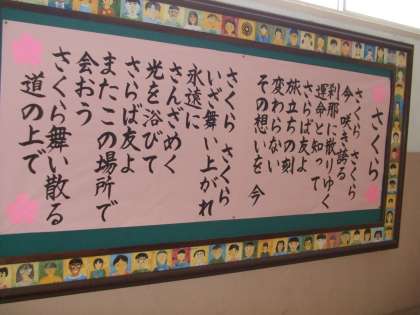 さくら
さくら さくら
今 咲き誇る
刹那に散りゆく
運命と知って
さらば友よ
旅立ちの刻
変わらない
その想いを 今
さくら さくら
いざ舞い上がれ
永遠に
さんざめく
光を浴びて
さらば友よ
またこの場所で
会おう
さくら舞い散る
道の上で